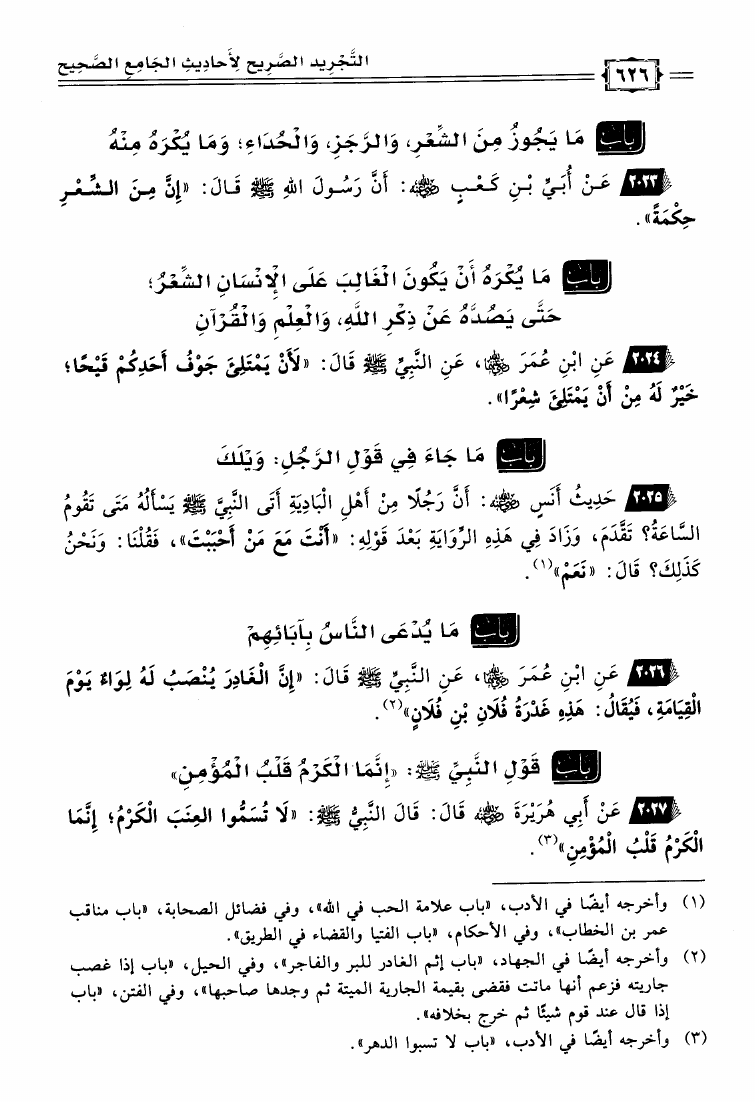 ٦٢٦ التَّجْرِيد الصَّرِيح لِأَحادِيثِ الجَامِعِ الصَّحِيح
باب مَا يَجُوزُ مِنَ الشِّعْرِ، وَالرَّجَزِ، وَالْحُدَاءِ؛ وَمَا يُكْرَهُ مِنْهُ
٢٠٢٣ عَنْ أُبَيِّ بْنِ كَعْبٍ رضي الله عنه: أَنَّ رَسُولَ اللهِ ﷺ قَالَ: «إِنَّ مِنَ الشِّعْرِ
حِكْمَةً».
باب مَا يُكْرَهُ أَنْ يَكُونَ الْغَالِبَ عَلَى الْإِنْسَانِ الشِّعْرُ؛
حَتَّى يَصُدَّهُ عَنْ ذِكْرِ اللَّهِ، وَالْعِلْمِ وَالْقُرْآنِ
٢٠٢٤ عَنِ ابْنِ عُمَرَ رضي الله عنهما، عَنِ النَّبِيِّ ﷺ قَالَ: «لَأَنْ يَمْتَلِئَ جَوْفُ أَحَدِكُمْ قَيْحًا؛
خَيْرٌ لَهُ مِنْ أَنْ يَمْتَلِئَ شِعْرًا».
باب مَا جَاءَ فِي قَوْلِ الرَّجُلِ: وَيْلَكَ
٢٠٢٥ حَدِيثُ أَنَسٍ رضي الله عنه: أَنَّ رَجُلًا مِنْ أَهْلِ الْبَادِيَةِ أَتَى النَّبِيَّ ﷺ يَسْأَلُهُ مَتَى تَقُومُ
السَّاعَةُ؟ تَقَدَّمَ، وَزَادَ فِي هَذِهِ الرِّوَايَةِ بَعْدَ قَوْلِهِ: «أَنْتَ مَعَ مَنْ أَحْبَبْتَ»، فَقُلْنَا: وَنَحْنُ
كَذَلِكَ؟ قَالَ: «نَعَمْ»(١).
باب مَا يُدْعَى النَّاسُ بِآبَائِهِمْ
٢٠٢٦ عَنِ ابْنِ عُمَرَ رضي الله عنهما، عَنِ النَّبِيِّ ﷺ قَالَ: «إِنَّ الْغَادِرَ يُنْصَبُ لَهُ لِوَاءٌ يَوْمَ
الْقِيَامَةِ، فَيُقَالُ: هَذِهِ غَدْرَةُ فُلَانِ بْنِ فُلَانٍ»(٢).
باب قَوْلِ النَّبِيِّ ﷺ: «إِنَّمَا الْكَرْمُ قَلْبُ الْمُؤْمِنِ»
٢٠٢٧ عَنْ أَبِي هُرَيْرَةَ رضي الله عنه قَالَ: قَالَ النَّبِيُّ ﷺ: «لَا تُسَمُّوا الْعِنَبَ الْكَرْمَ؛ إِنَّمَا
الْكَرْمُ قَلْبُ الْمُؤْمِنِ»(٣).
(١) وأخرجه أيضًا في الأدب، «باب علامة الحب في الله»، وفي فضائل الصحابة، «باب مناقب
عمر بن الخطاب»، وفي الأحكام، «باب الفتيا والقضاء في الطريق».
(٢) وأخرجه أيضًا في الجهاد، «باب إثم الغادر للبر والفاجر»، وفي الحيل، «باب إذا غصب
جاريته فزعم أنها ماتت فقضى بقيمة الجارية الميتة ثم وجدها صاحبها»، وفي الفتن، «باب
إذا قال عند قوم شيئًا ثم خرج بخلافه».
(٣) وأخرجه أيضًا في الأدب، «باب لا تسبوا الدهر».